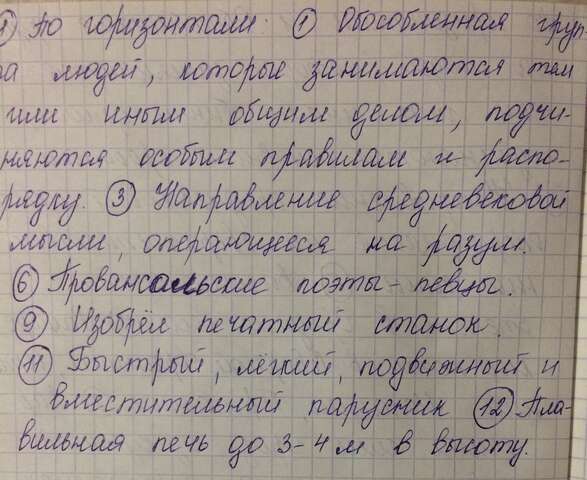 1) По горизонтали: ① Обособленная груп-
па людей, которые занимаются тем
или иным общим делом, подчи-
няются особым правилам и распо-
рядку. ③ Направление средневековой
мысли, операющееся на разум.
⑥ Провансальские поэты-певцы.
⑨ Изобрёл печатный станок.
⑪ Быстрый, лёгкий, подвижный и
вместительный парусник ⑫ Пла-
вильная печь до 3-4 м в высоту.